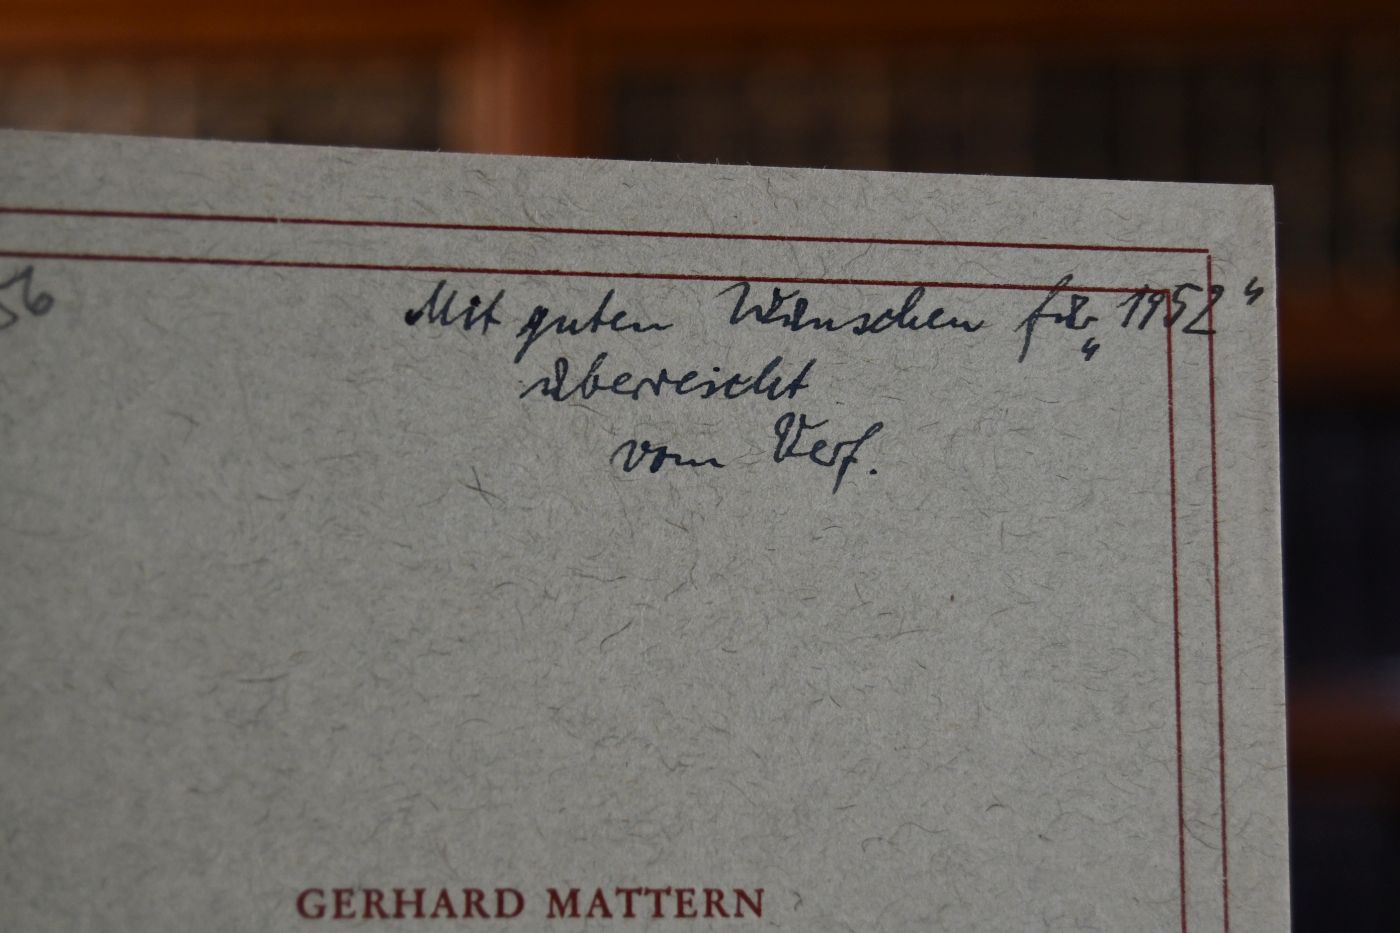 56
Mit guten Wünschen für „1952“
überreicht
vom Verf.
GERHARD MATTERN